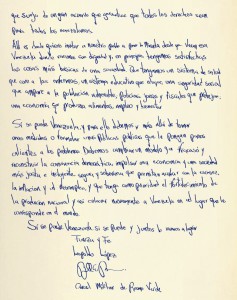 que surja de
que todos los derechos sean
para todos los venezolanos.
Allí es donde quiero invitar a nuestro pueblo a poner la mirada desde ya. Una
Venezuela donde vivamos con dignidad y en progreso tengamos satisfechas
las cosas más básicas de una sociedad. Que tengamos un sistema de salud
que cure a los enfermos, un sistema educativo que eduque, una seguridad social
que ampare a la población vulnerable, policías, jueces y fiscales que protejan,
una economía que produzca alimentos, empleo y bienestar
Si se puede Venezuela, y para ello debemos ir más allá de tomar
unas medidas o formular unas políticas públicas que le pongan paños
calientes a los problemas. Debemos construir un modelo
reconstruir la convivencia democrática, impulsar una economía y una sociedad
más justa e integrada, segura y solidaria que permita acabar con la escasez,
la inflación y el desempleo, y que tenga como prioridad el fortalecimiento de
la producción nacional y así colocar nuevamente a Venezuela en el lugar que le
corresponde en el mundo.
Si se puede Venezuela, si se puede y juntos lo vamos a lograr
Fuerza y Fe
Leopoldo López
Cárcel Militar de Ramo Verde